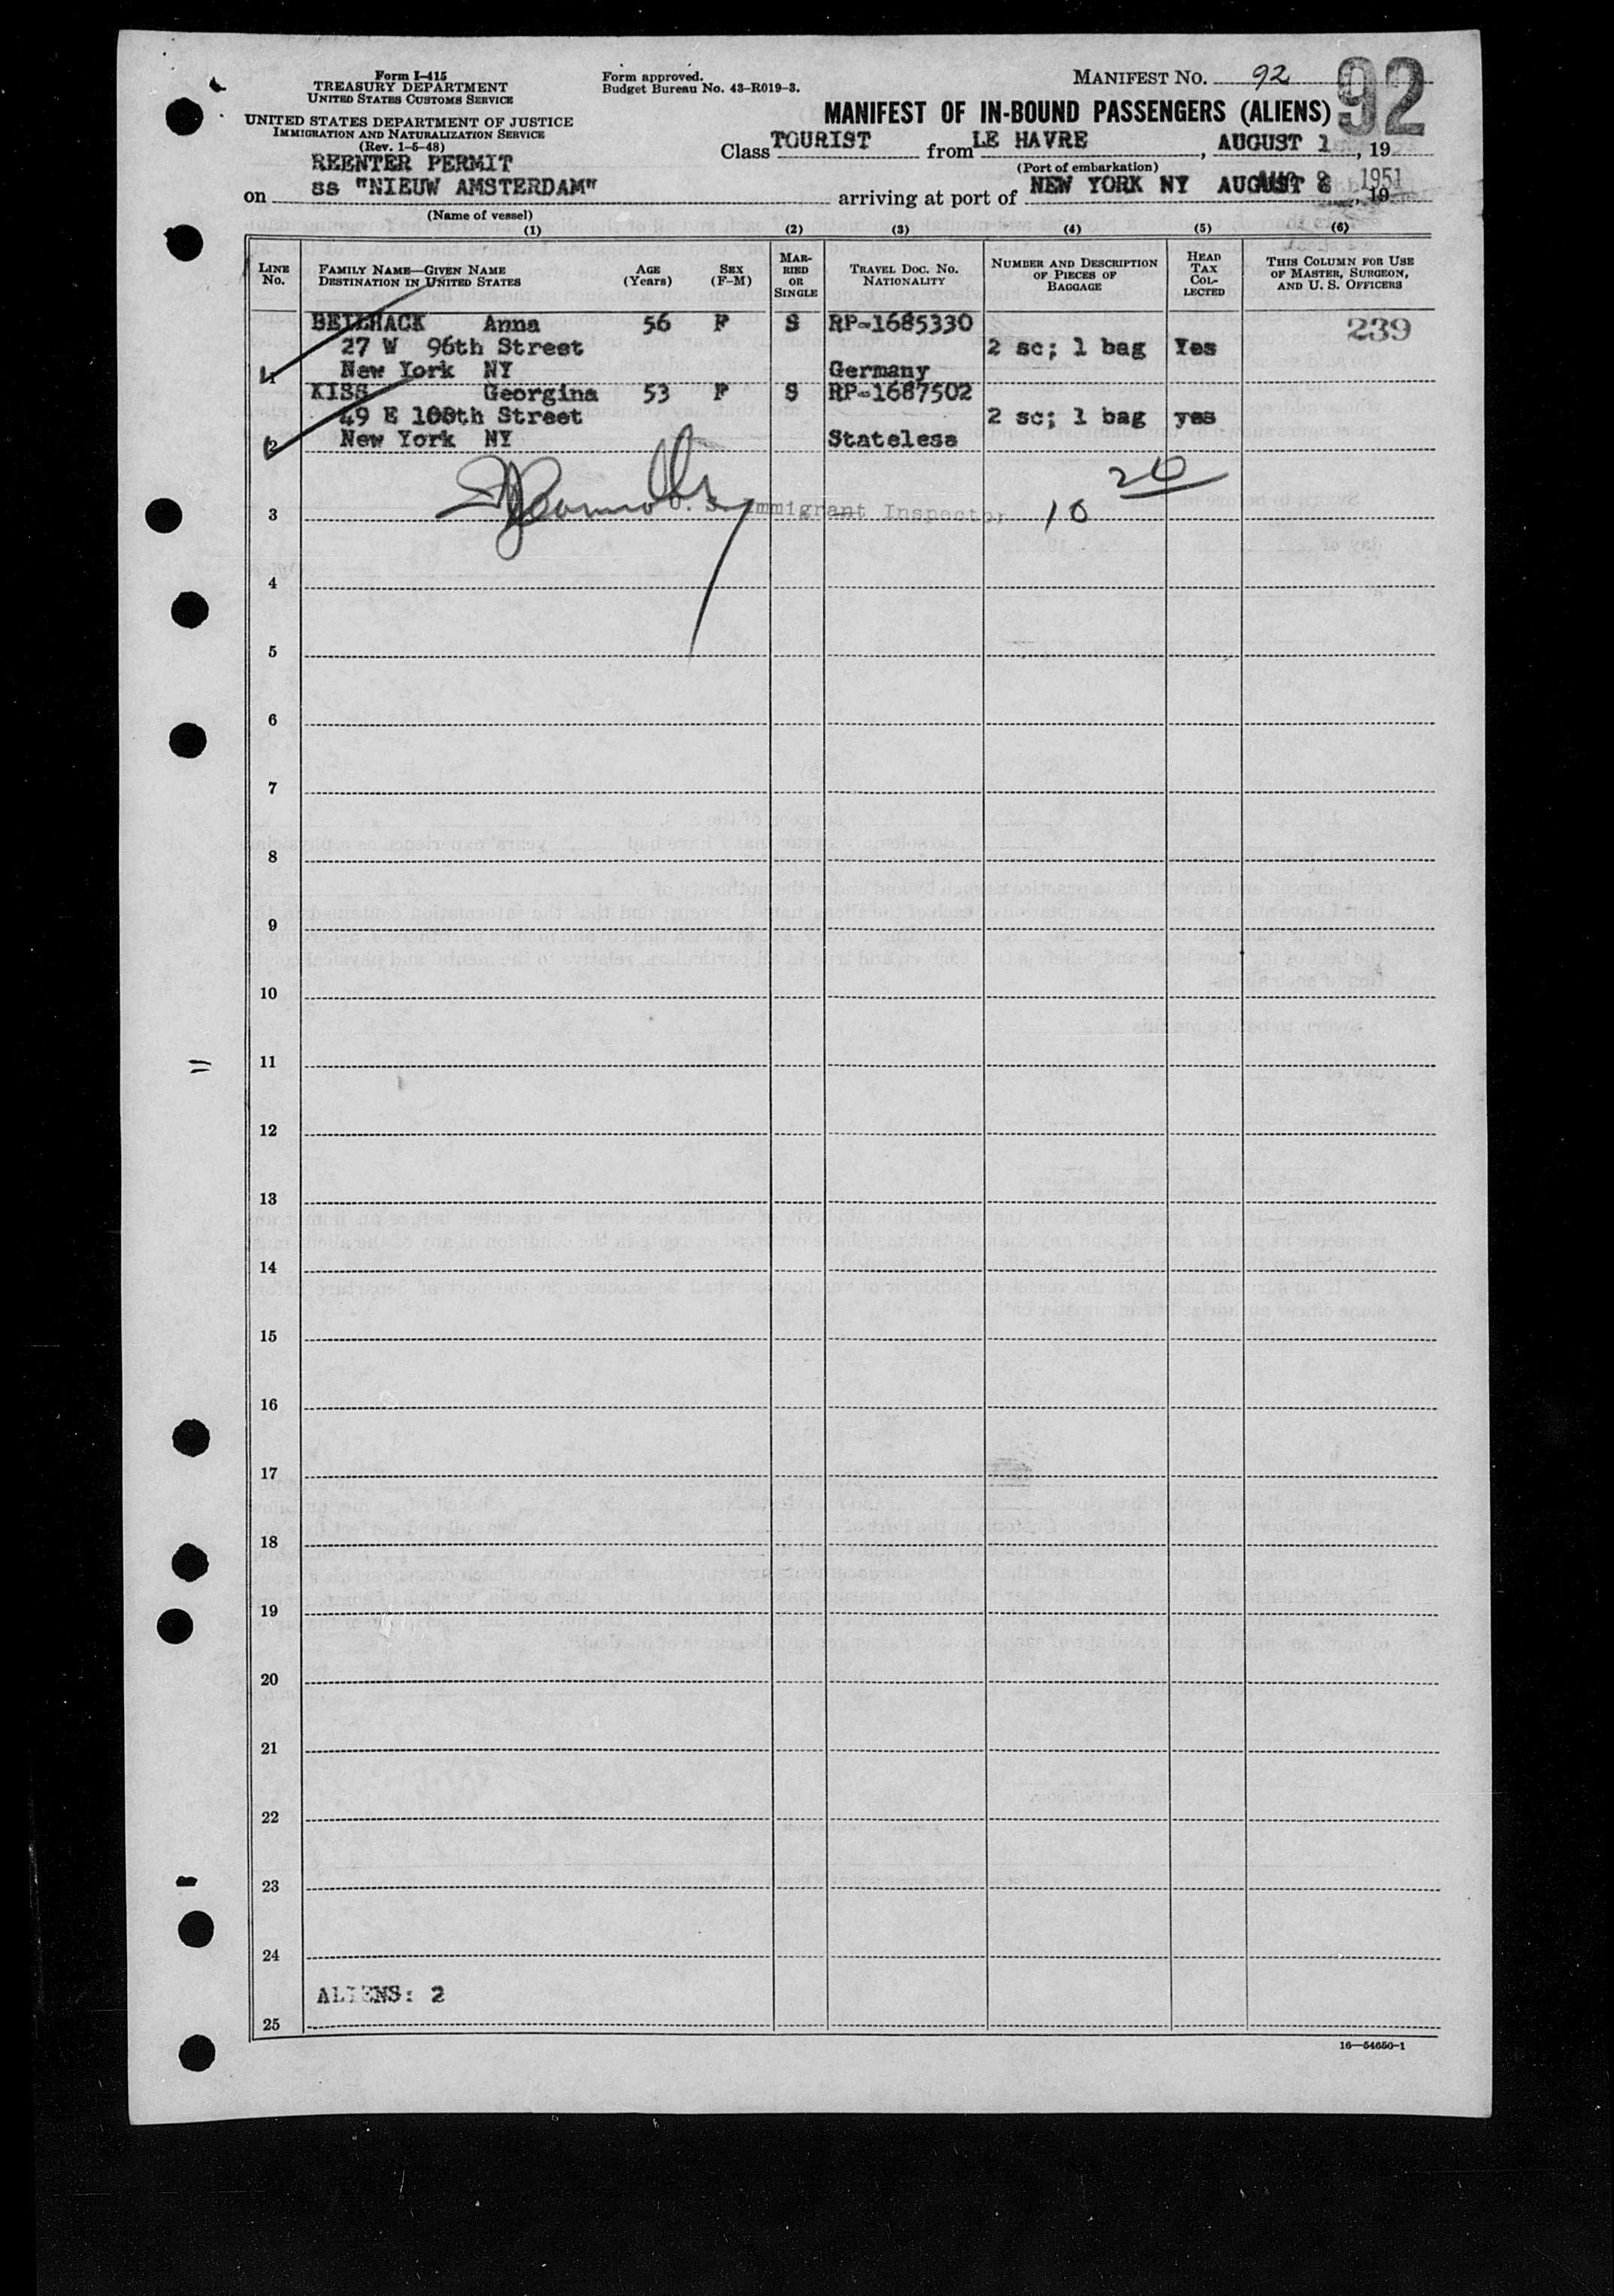 Form I-415
TREASURY DEPARTMENT
UNITED STATES CUSTOMS SERVICE
UNITED STATES DEPARTMENT OF JUSTICE
IMMIGRATION AND NATURALIZATION SERVICE
(Rev. 1-5-48)
Form approved.
Budget Bureau No. 43-R019-3.
MANIFEST NO. 92
92
MANIFEST OF IN-BOUND PASSENGERS (ALIENS)
Class TOURIST from LE HAVRE, AUGUST 1, 19
(Port of embarkation)
REENTER PERMIT
on ss "NIEUW AMSTERDAM" arriving at port of NEW YORK NY AUGUST 8, 19 1951
(Name of vessel)
(1) (2) (3) (4) (5) (6)
LINE No. FAMILY NAME—GIVEN NAME DESTINATION IN UNITED STATES AGE (Years) SEX (F-M) MARRIED OR SINGLE TRAVEL DOC. NO. NATIONALITY NUMBER AND DESCRIPTION OF PIECES OF BAGGAGE HEAD TAX COLLECTED THIS COLUMN FOR USE OF MASTER, SURGEON, AND U. S. OFFICERS
BEILHACK Anna 56 F S RP-1685330 239
27 W 96th Street 2 sc; 1 bag Yes
1 New York NY Germany
KISS Georgina 53 F S RP-1687502
49 E 100th Street 2 sc; 1 bag yes
2 New York NY Stateless
26
3 U. S. Immigrant Inspector 10
4
5
6
7
8
9
10
11
12
13
14
15
16
17
18
19
20
21
22
23
24
ALIENS: 2
25
16—54650-1